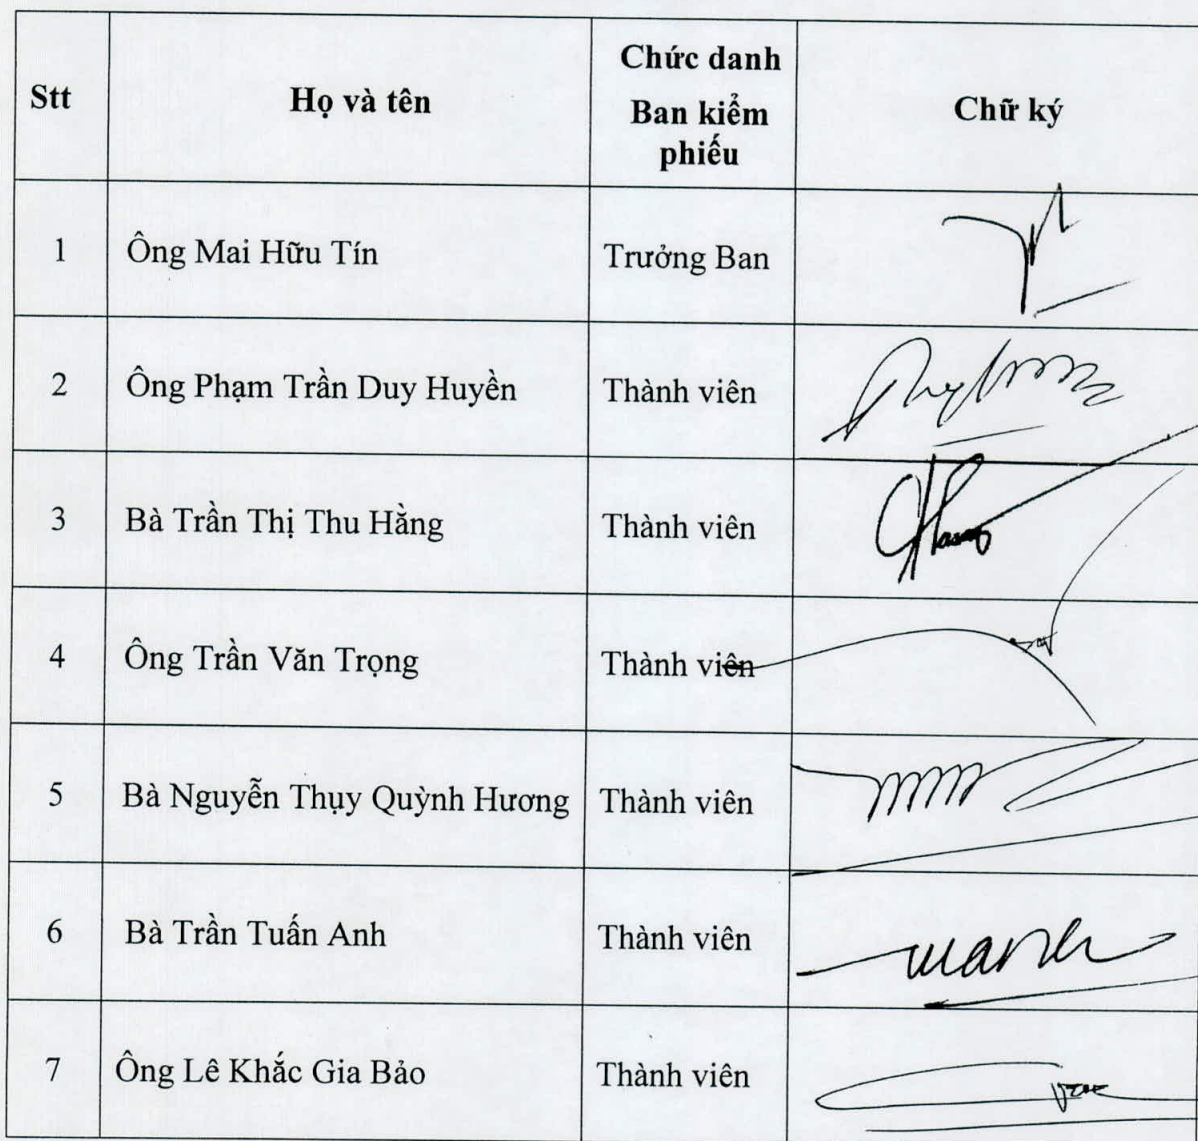 Stt Họ và tên Chức danh Ban kiểm phiếu Chữ ký
1 Ông Mai Hữu Tín Trưởng Ban
2 Ông Phạm Trần Duy Huyền Thành viên
3 Bà Trần Thị Thu Hằng Thành viên
4 Ông Trần Văn Trọng Thành viên
5 Bà Nguyễn Thụy Quỳnh Hương Thành viên
6 Bà Trần Tuấn Anh Thành viên
7 Ông Lê Khắc Gia Bảo Thành viên